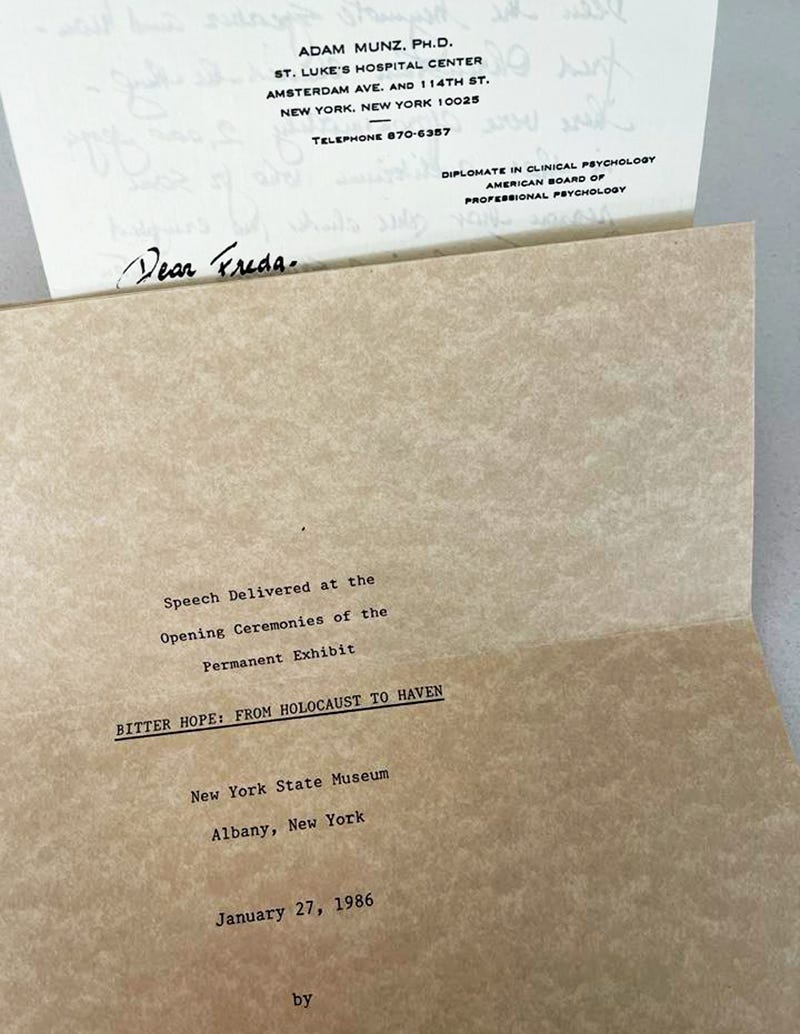 ADAM MUNZ, PH.D.
ST. LUKE'S HOSPITAL CENTER
AMSTERDAM AVE. AND 114TH ST.
NEW YORK, NEW YORK 10025
TELEPHONE 870-6357
DIPLOMATE IN CLINICAL PSYCHOLOGY
AMERICAN BOARD OF
PROFESSIONAL PSYCHOLOGY
Dear Freda.
Speech Delivered at the
Opening Ceremonies of the
Permanent Exhibit
BITTER HOPE: FROM HOLOCAUST TO HAVEN
New York State Museum
Albany, New York
January 27, 1986
by